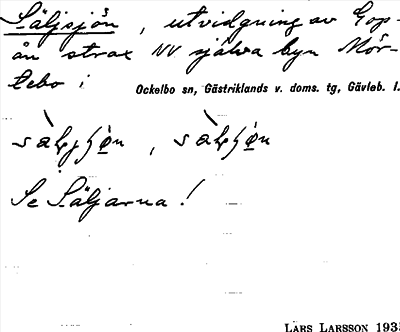 Säljsjön, utvidgning av Gop-
ån strax NV själva byn Mör-
tebo i Ockelbo sn, Gästriklands v. doms. tg, Gävleb. l.
Se Säljarna!
LARS LARSSON 193